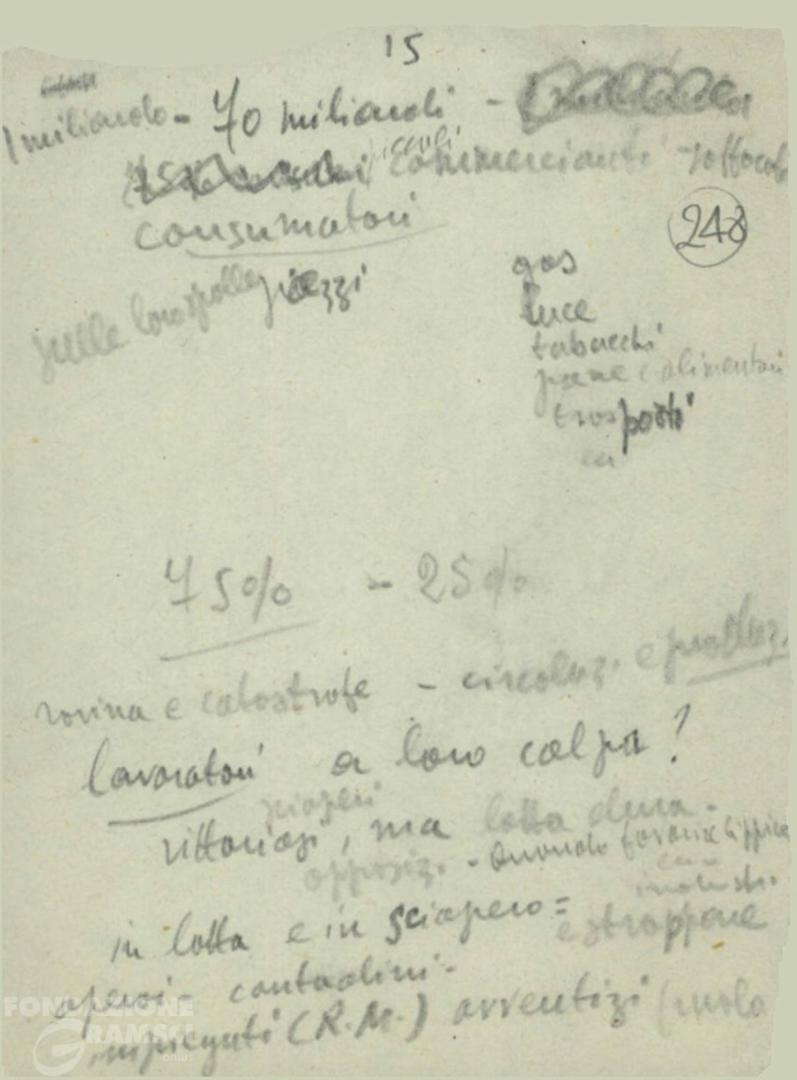 15
1 miliardo - 70 miliardi -
piccoli commercianti - soffocati
consumatori
248
sulle loro spalle prezzi
gas
luce
tabacchi
pane e alimentari
trasporti
ecc
75% - 25%
rovina e catastrofe - circolaz. e produz.
lavoratori a loro colpa?
scioperi
vittoriosi, ma lotta dura -
opposiz. - quando
industr.
in lotta e in sciopero =
e strappone
operai - contadini -
impiegati (R.M.) avventizi (
FONDAZIONE
GRAMSCI
onlus